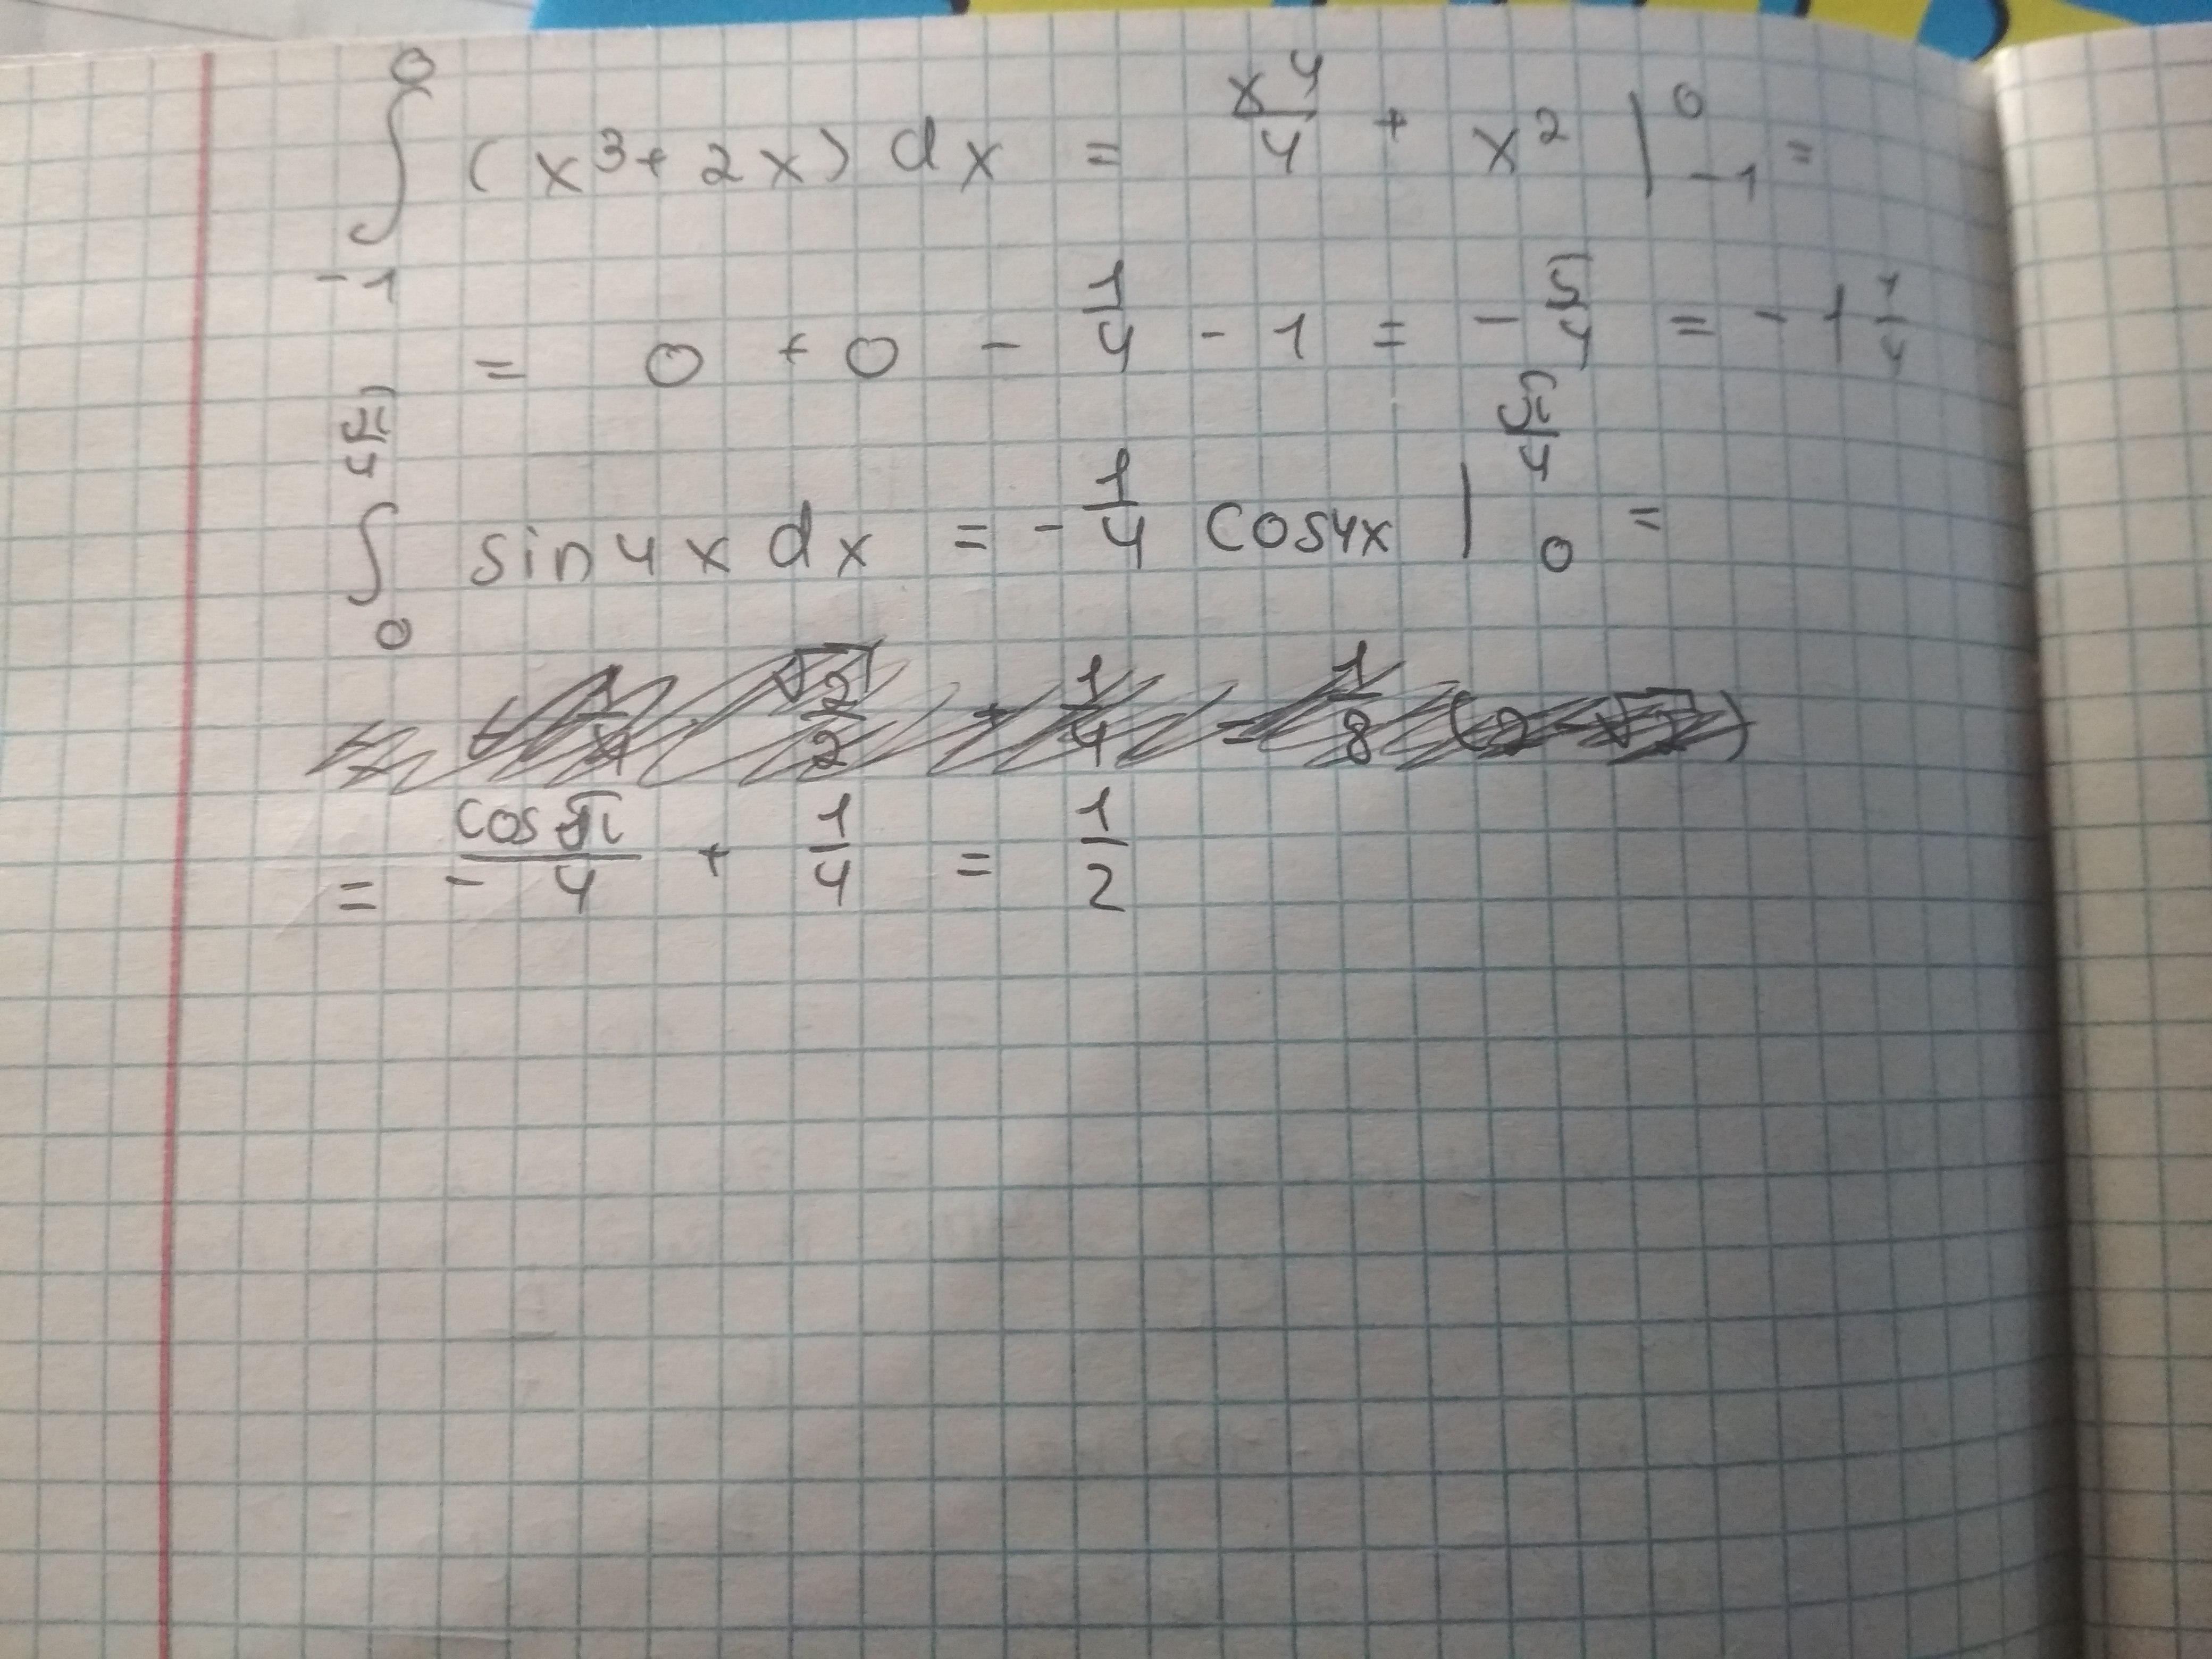 ∫₋₁⁰ (x³ + 2x) dx = x⁴/4 + x² |₋₁⁰ =
= 0 + 0 - 1/4 - 1 = - 5/4 = - 1 1/4
∫₀^(π/4) sin4x dx = - 1/4 cos4x |₀^(π/4) =
= - cos π/4 + 1/4 = 1/2